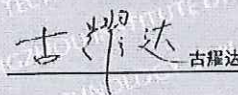 古耀达 古耀达